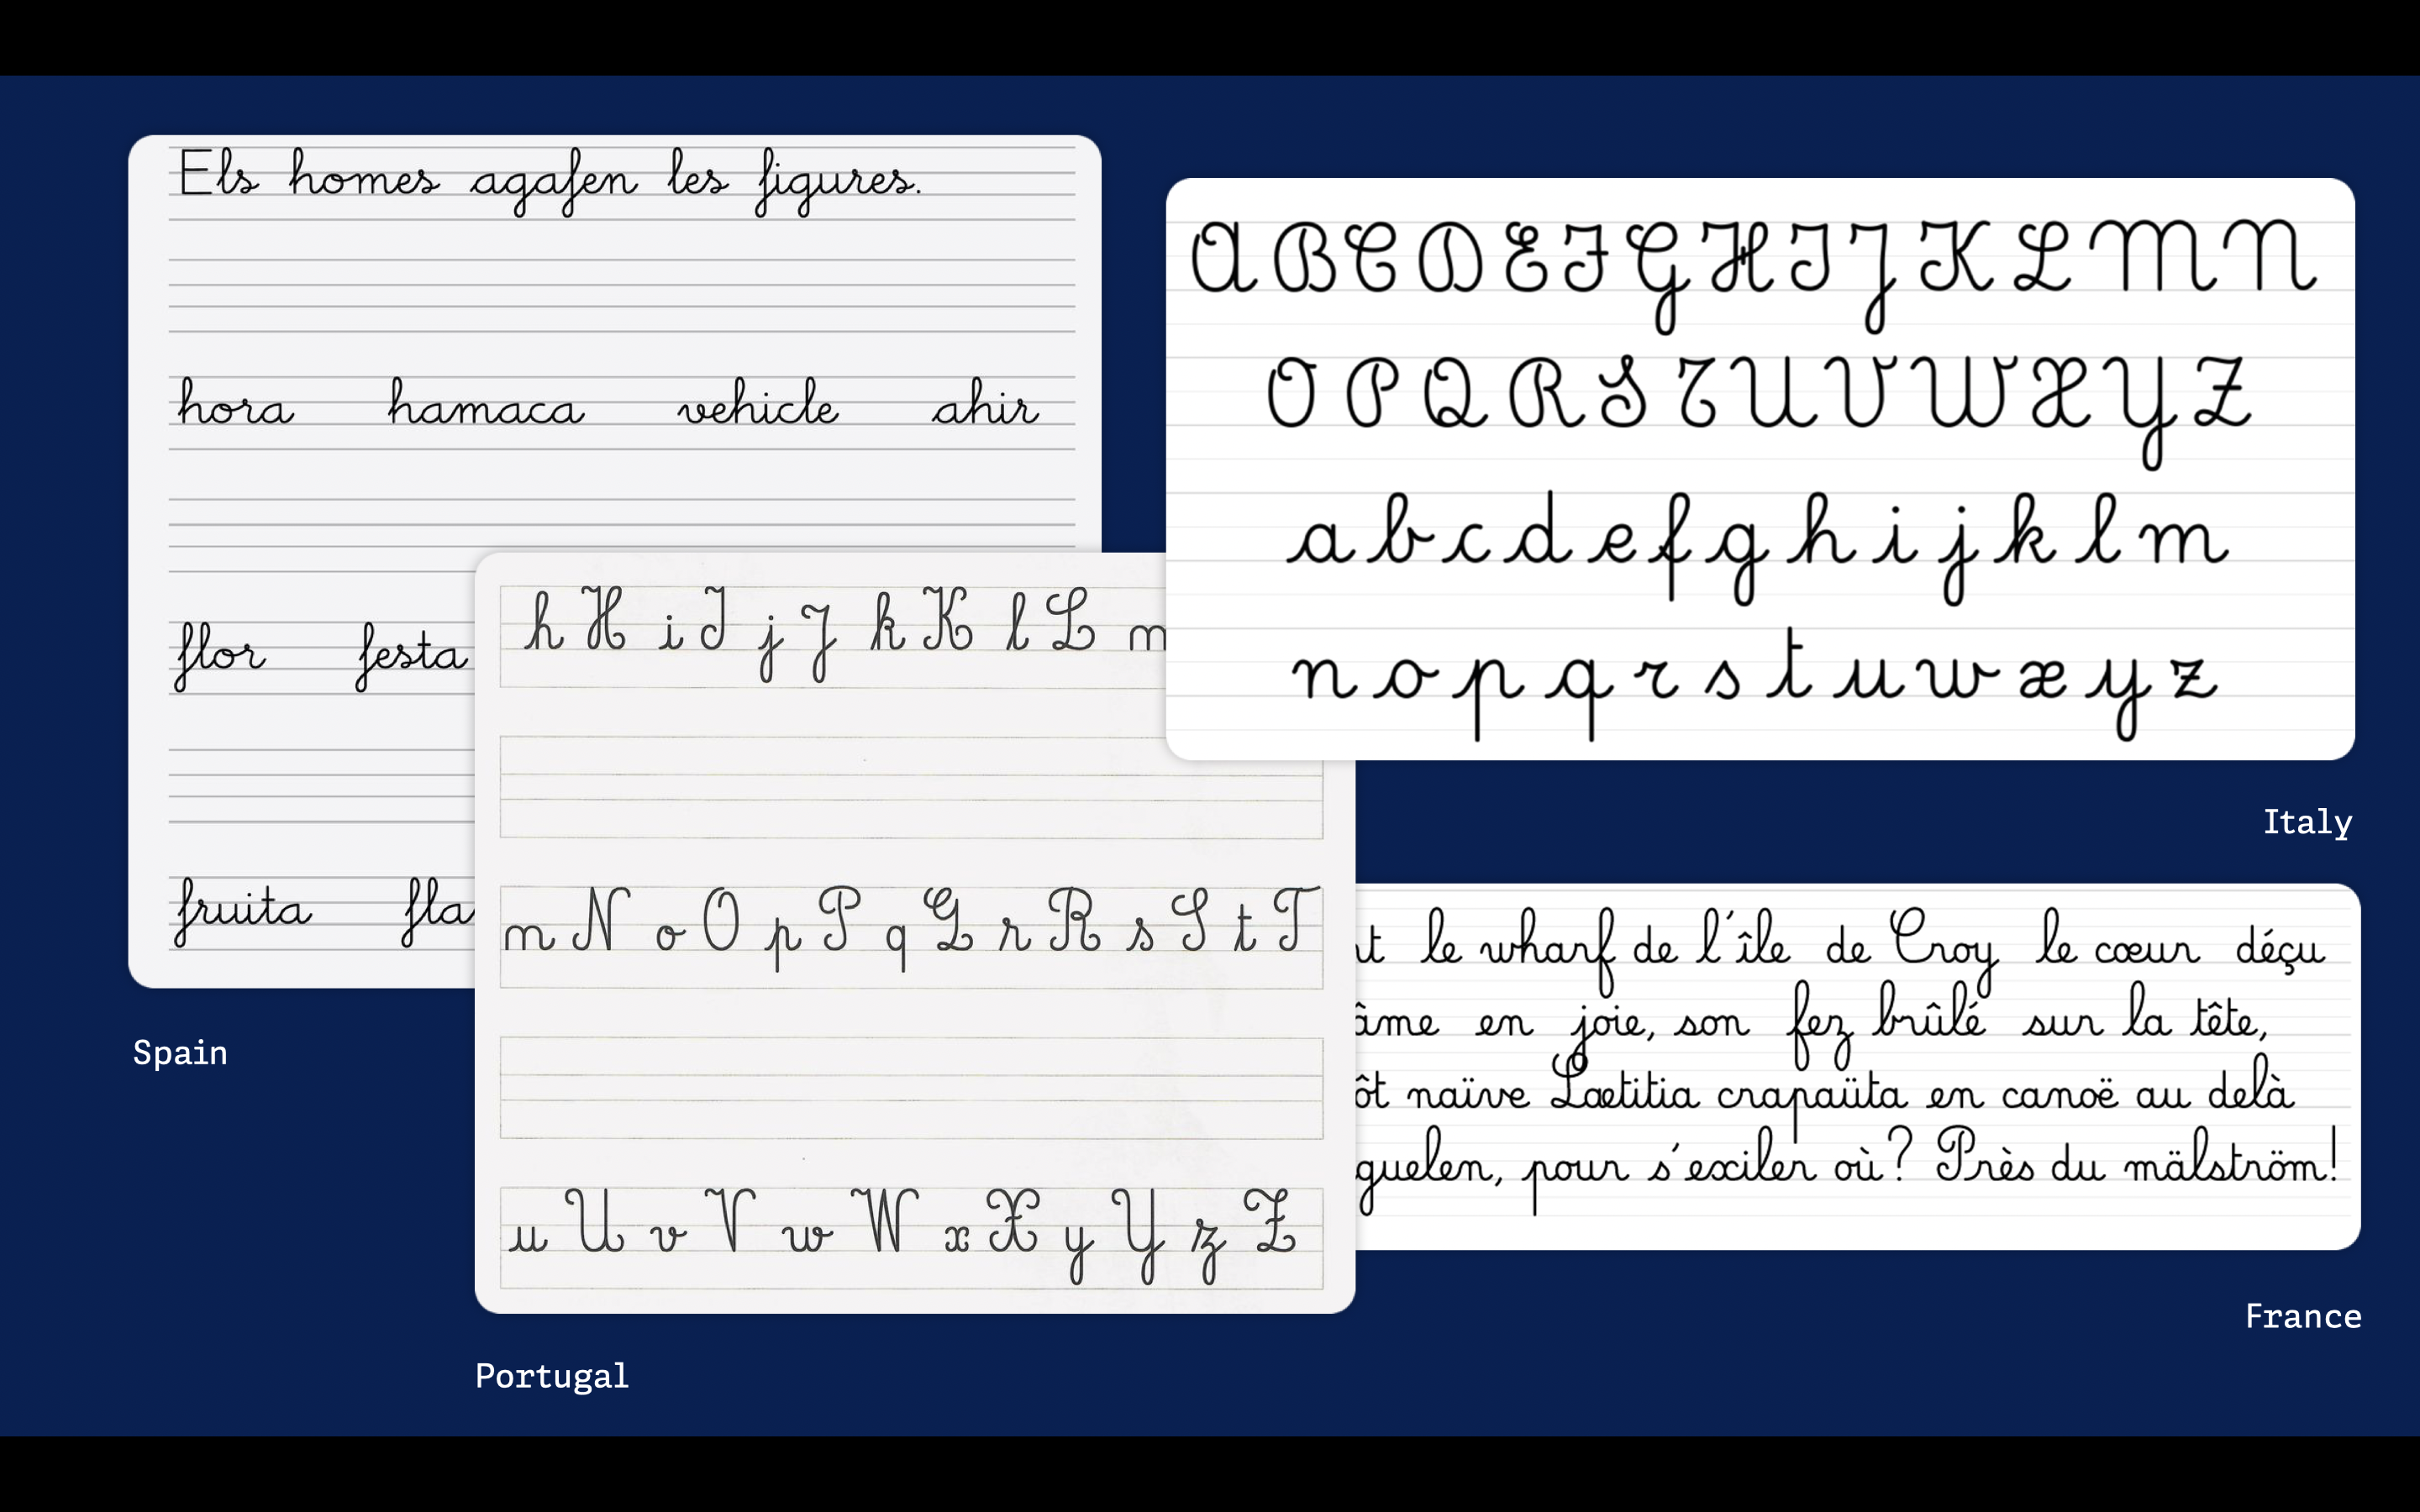 Els homes agafen les figures.
hora hamaca vehicle ahir
flor festa
fruita fla
Spain
h H i I j J k K l L m
m N o O p P q Q r R s S t T
u U v V w W x X y Y z Z
Portugal
A B C D E F G H I J K L M N
O P Q R S T U V W X Y Z
a b c d e f g h i j k l m
n o p q r s t u w x y z
Italy
t le wharf de l'île de Croy le cœur déçu
âme en joie, son fez brûlé sur la tête,
ôt naïve Lætitia crapaüta en canoë au delà
guelen, pour s'exiler où? Près du mälström!
France